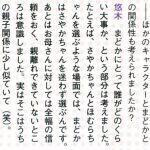 ――ほかのキャラクターとまどかと
の関係性も考えられましたか？
悠木　まどかにとって誰がどのくら
い大事か、という部分は考えました。
たとえば、さやかちゃんとほむらち
ゃんを選ぶような場面では、まどか
はさやかちゃんを迷わず選ぶんです。
あとはお母さんに対しては全幅の信
頼をおく、親離れできていないとこ
ろは意識しました。実はそこはうち
の親子関係に少し似ていて（笑）。